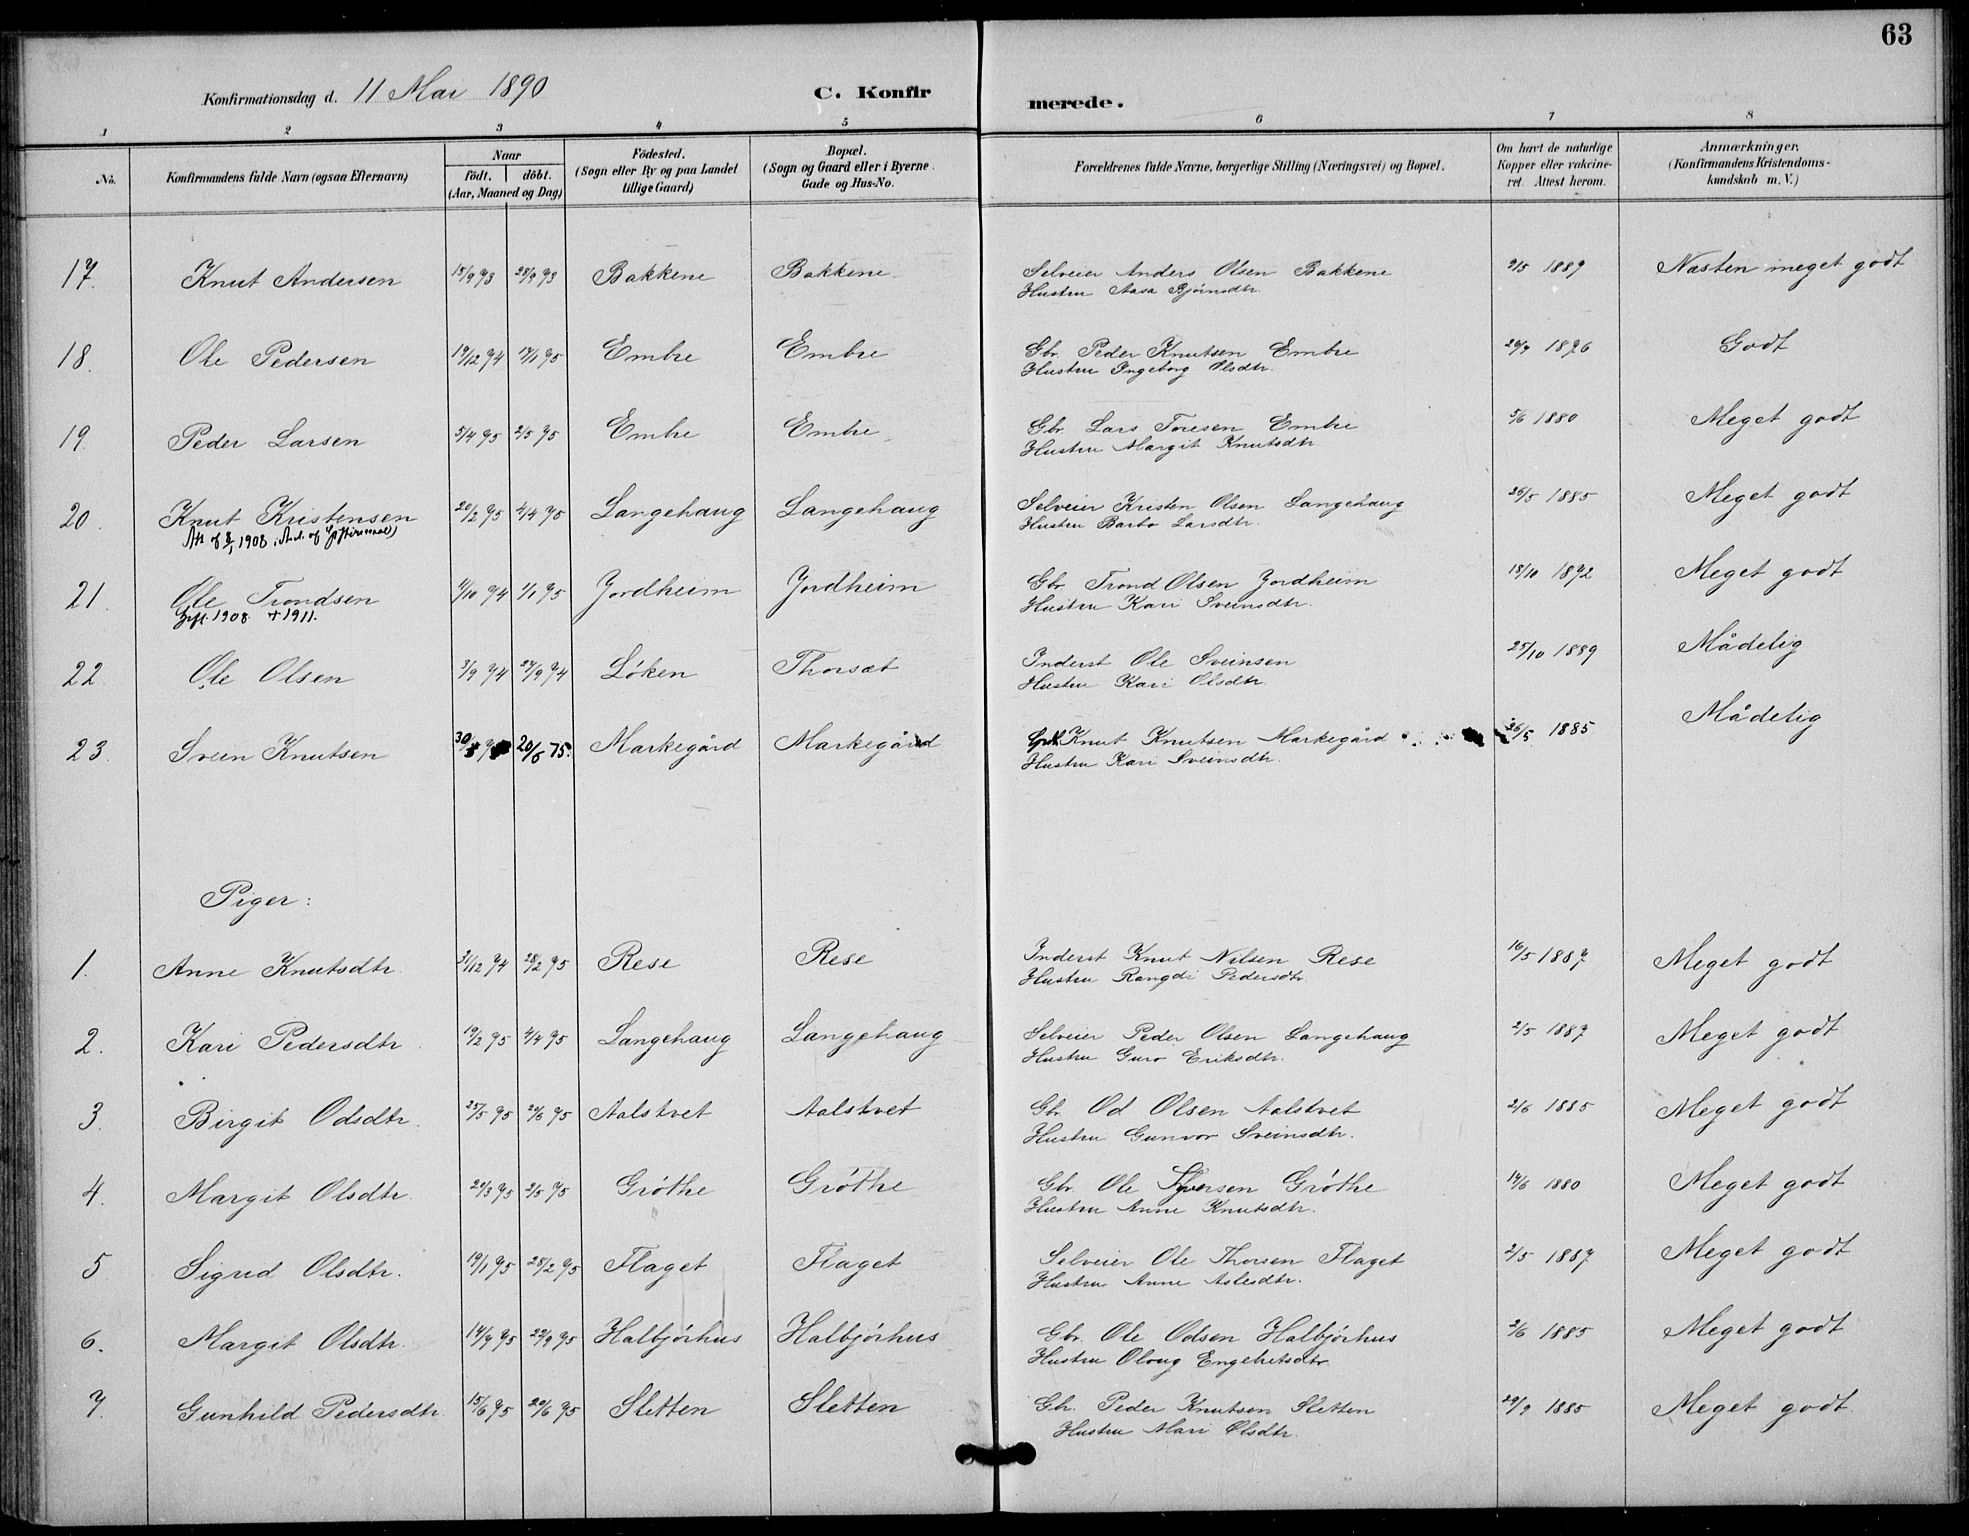 63
Konfirmationsdag d. 11 Mai 1890
C. Konfirmerede.
1 2 3 4 5 6 7 8
No. Konfirmandens fulde Navn (ogsaa Efternavn) Naar Født. døbt. (Aar, Maaned og Dag) Födested. (Sogn eller By og paa Landet tillige Gaard) Bopæl. (Sogn og Gaard eller i Byerne Gade og Hus-No. Forældrenes fulde Navne, borgerlige Stilling (Næringsvei) og Bopæl. Om havt de naturlige Kopper eller vakcineret. Attest herom. Anmærkninger. (Konfirmandens Kristendomskundskab m. V.)
17. Knut Andersen 15/9 73 28/9 73 Bakkene Bakkene Selveier Anders Olsen Bakkene 2/5 1889 Næsten meget godt
Hustru Aasa Bjørnsdtr.
18. Ole Pedersen 19/12 74 17/1 75 Embre Embre Gbr. Peder Knutsen Embre 26/9 1876 Godt
Hustru Ingeborg Olsdtr.
19. Peder Larsen 5/4 75 2/5 75 Embre Embre Gbr. Lars Toresen Embre 5/6 1880 Meget godt
Hustru Margit Knutsdtr
20. Knut Kristensen 20/2 75 4/4 75 Langehaug Langehaug Selveier Kristen Olsen Langehaug 26/5 1885 Meget godt
Att. af 8/1 1908 i Anl. af Giftermaal)
Hustru Barbo Larsdtr.
21. Ole Trondsen 11/10 74 1/1 75 Jordheim Jordheim Gbr. Trond Olsen Jordheim 18/10 1872 Meget godt
Gift. 1908. + 1911.
Hustru Kari Sveinsdtr.
22. Ole Olsen 3/9 74 27/9 74 Löken Thorsæt Inderst Ole Sveinsen 25/10 1889 Mådelig
Hustru Kari Olsdtr.
23. Svein Knutsen 20/6 75. Markegård Markegård Knut Knutsen Markegård 26/5 1885 Mådelig
Hustru Kari Sveinsdtr.
Piger:
1. Anne Knutsdtr. 31/12 74 28/2 75 Rese Rese Inderst Knut Nilsen Rese 16/5 1887 Meget godt
Hustru Rangdi Pedersdtr.
2. Kari Pedersdtr. 19/2 75 4/4 75 Langehaug Langehaug Selveier Peder Olsen Langehaug 2/5 1887 Meget godt
Hustru Guro Eriksdtr.
3. Birgit Odsdtr. 25/5 75 20/6 75 Aalstvet Aalstvet Gbr. Od Olsen Aalstvet 2/6 1885 Meget godt
Hustru Gunvor Sveinsdtr.
4. Margit Olsdtr. 29/3 75 2/5 75 Gröthe Gröthe Gbr. Ole Syversen Gröthe 14/6 1880 Meget godt
Hustru Anne Knutsdtr.
5 Sigrid Olsdtr. 19/1 75 28/2 75 Flaget Flaget Selveier Ole Thorsen Flaget 2/5 1887 Meget godt
Hustru Anne Aslesdtr.
6. Margit Olsdtr. 14/7 75 22/9 75 Halbjörhus Halbjörhus Gbr. Ole Odsen Halbjörhus 2/6 1885 Meget godt
Hustru Oloug Engebretsdtr.
7 Gunhild Pedersdtr. 15/6 75 20/6 75 Sletten Sletten Gbr. Peder Knutsen Sletten 29/9 1885 Meget godt
Hustru Mari Olsdtr.